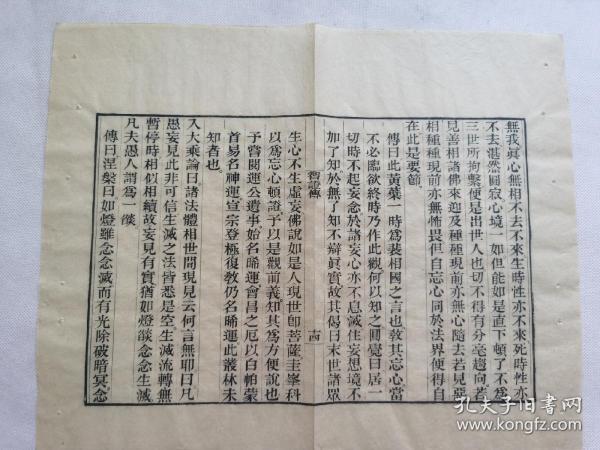 無我眞心無相不去不來生時性亦不來死時性亦
不去湛然圓寂心境一如但能如是直下頓了不爲
三世所拘繫便是出世人也切不得有分毫趨向若
見善相諸佛來迎及種種現前亦無心隨去若見惡
相種種現前亦無怖畏但自忘心同於法界便得自
在此是要節
傳曰此黃葉一時爲裴相國之言也敎其忘心當
不必臨欲終時乃作此觀何以知之圓覺曰居一
切時不起妄念於諸妄心亦不息滅住妄想境不
加了知於無了知不辯眞實故其偈曰末世諸眾
智證傳
十四
生心不生虛妄佛說如是人現世卽菩薩圭峯科
以爲忘心頓證予以是觀前義知其爲方便說也
予嘗閱運公遺事始名晞運會昌之厄以白帕蒙
首易名神運宣宗登極復敎仍名晞運此叢林未
知者也
入大乘論曰諸法體相世間現見云何言無耶曰凡
愚妄見此非可信生滅之法皆悉是空生滅流轉無
暫停時相似相續故妄見有實猶如燈燄念念生滅
凡夫愚人謂爲一燄
傳曰涅槃曰如燈雖念念滅而有光除破暗冥念
孔夫子旧书网
www.kongfz.com